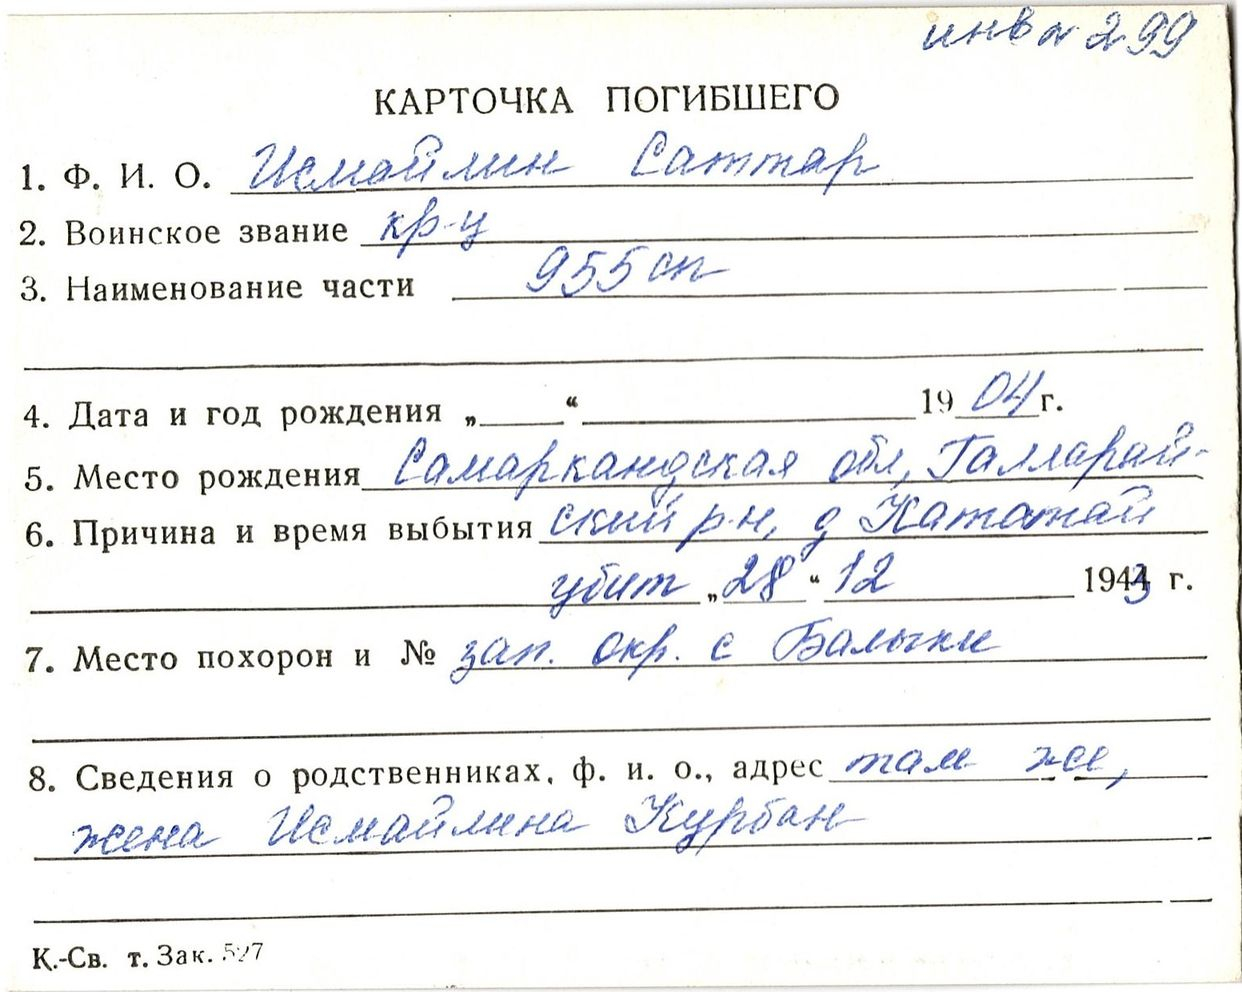 инв № 299
КАРТОЧКА ПОГИБШЕГО
1. Ф. И. О. Исмайлин Саттар
2. Воинское звание кр-ц
3. Наименование части 955 сп
4. Дата и год рождения „ “ 1904 г.
5. Место рождения Самаркандская обл, Галларай-
6. Причина и время выбытия ский р-н, д Катотай
убит „28“ 12 1943 г.
7. Место похорон и № зап. окр. с Балыки
8. Сведения о родственниках, ф. и. о., адрес там же,
жена Исмайлина Курбан
К.-Св. т. Зак. 527